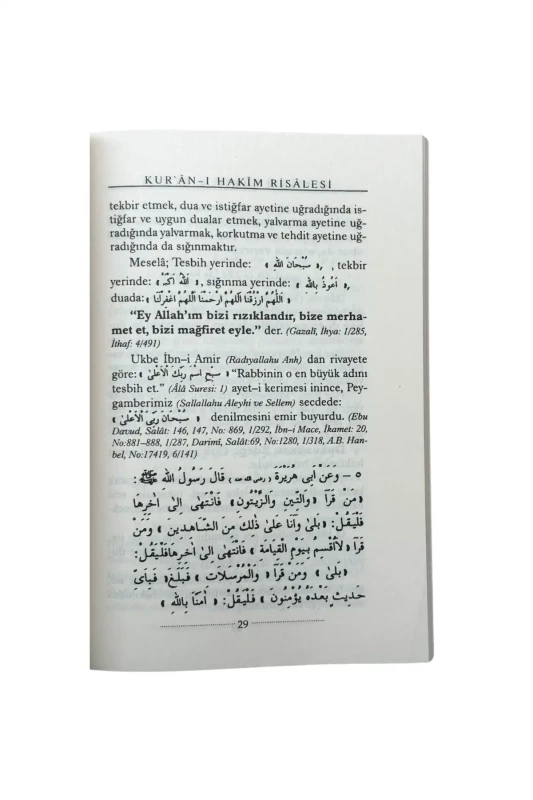 KUR'ÂN–I HAKÎM RİSÂLESİ
tekbir etmek, dua ve istiğfar ayetine uğradığında is-
tiğfar ve uygun dualar etmek, yalvarma ayetine uğ-
radığında yalvarmak, korkutma ve tehdit ayetine uğ-
radığında da sığınmaktır.
Meselâ; Tesbih yerinde: « سُبْحَانَ اللهِ », tekbir
yerinde: « اَللهُ اَكْبَرُ », sığınma yerinde: « اَعُوذُ بِاللهِ »,
duada: « اَللّٰهُمَّ ارْزُقْنَا اَللّٰهُمَّ ارْحَمْنَا اَللّٰهُمَّ اغْفِرْلَنَا »
“Ey Allah’ım bizi rızıklandır, bize merha-
met et, bizi mağfiret eyle.” der. (Gazalî, İhya: 1/285,
İthaf: 4/491)
Ukbe İbn–i Amir (Radıyallahu Anh) dan rivayete
göre: « سَبِّحِ اسْمَ رَبِّكَ الْاَعْلٰى » “Rabbinin o en büyük adını
tesbih et.” (Âlâ Suresi: 1) ayet–i kerimesi inince, Pey-
gamberimiz (Sallallahu Aleyhi ve Sellem) secdede:
« سُبْحَانَ رَبِّىَ الْاَعْلٰى » denilmesini emir buyurdu. (Ebu
Davud, Salât: 146, 147, No: 869, 1/292, İbn–i Mace, İkamet: 20,
No:881–888, 1/287, Darimî, Salât:69, No:1280, 1/318, A.B. Han-
bel, No:17419, 6/141)
٥ - وَعَنْ اَبِى هُرَيْرَةَ (رضى الله عنه) قَالَ رَسُولُ اللهِ ﷺ :
مَنْ قَرَأَ « وَالتِّينِ وَالزَّيْتُونِ » فَانْتَهٰى اِلٰى اٰخِرِهَا
فَلْيَقُلْ: « بَلٰى وَاَنَا عَلٰى ذٰلِكَ مِنَ الشَّاهِدِينَ » وَمَنْ
قَرَأَ « لَا اُقْسِمُ بِيَوْمِ الْقِيَامَةِ » فَانْتَهٰى اِلٰى اٰخِرِهَا فَلْيَقُلْ:
« بَلٰى » وَمَنْ قَرَأَ « وَالْمُرْسَلَاتِ » فَبَلَغَ « فَبِاَىِّ
حَدِيثٍ بَعْدَهُ يُؤْمِنُونَ » فَلْيَقُلْ: « اٰمَنَّا بِاللهِ »
29